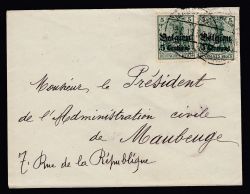 Belgien
5 Centimes
Belgien
5 Centimes
Monsieur le Président
de l'Administration civile
de Maubeuge
7, Rue de la République